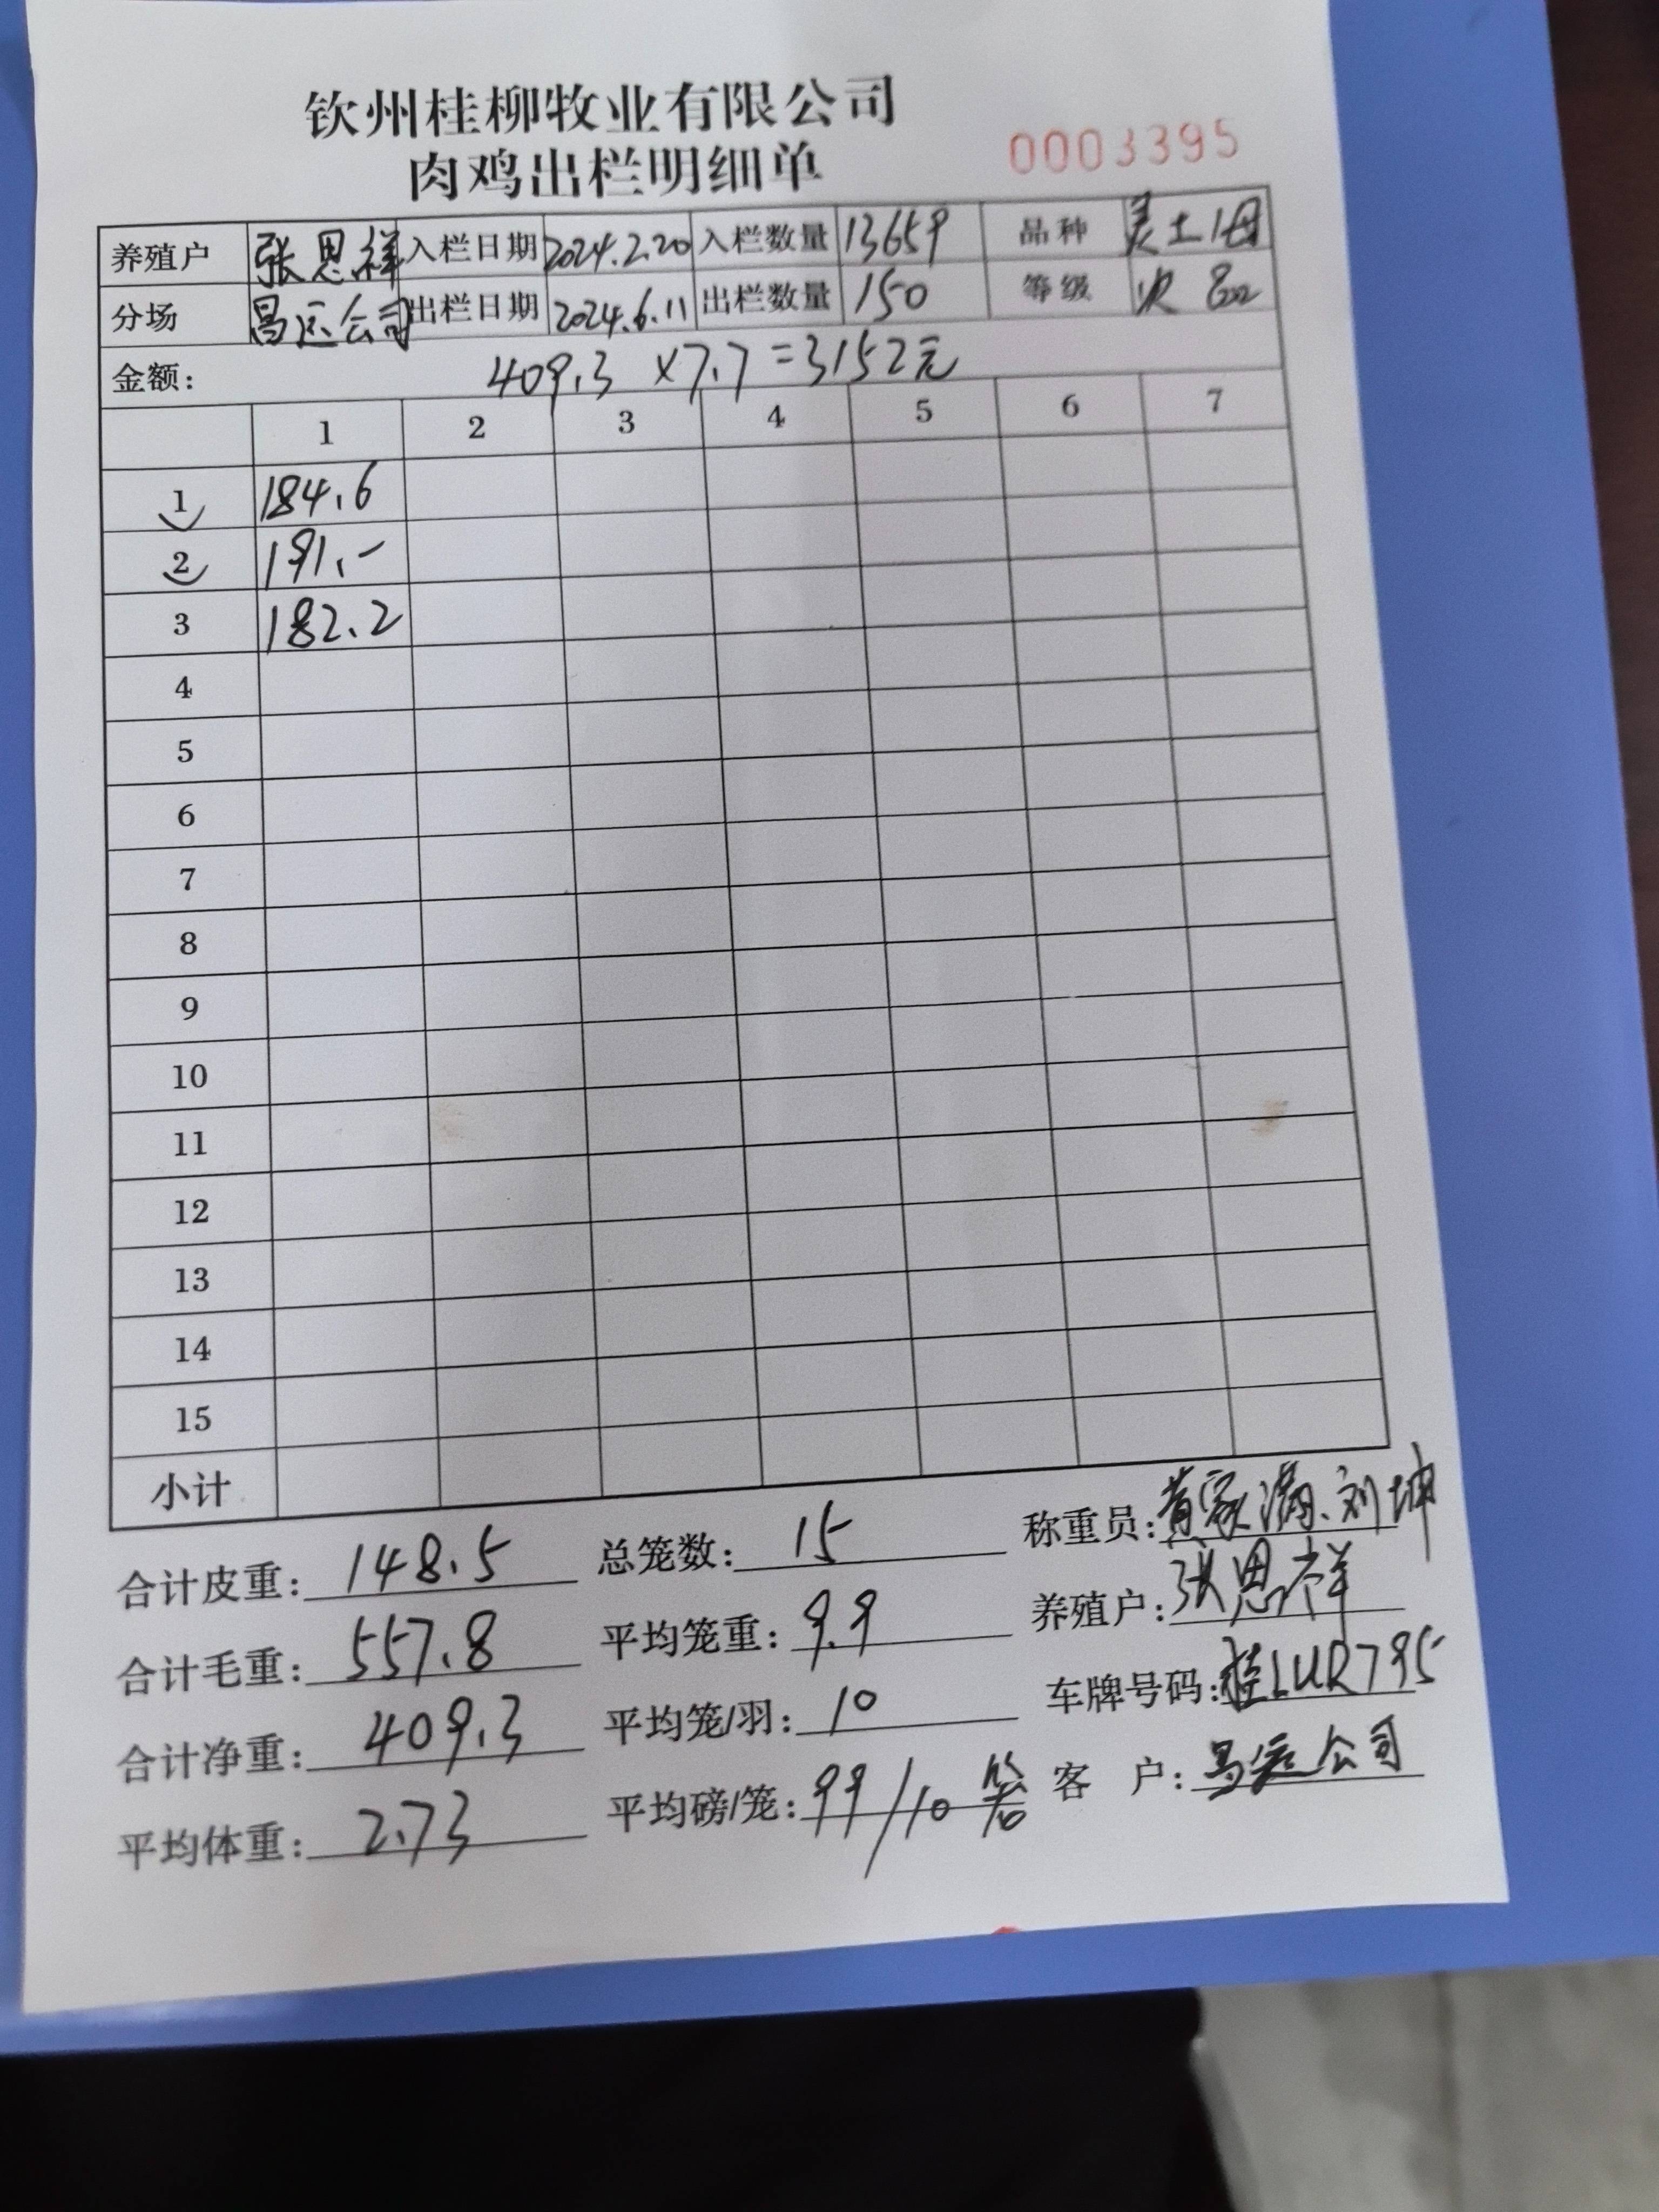 钦州桂柳牧业有限公司
肉鸡出栏明细单 0003395
养殖户 张恩祥 入栏日期 2024.2.20 入栏数量 13659 品种 美土1母
分场 昌运公司 出栏日期 2024.6.11 出栏数量 150 等级 次品
金额: 409.3 ×7.7=3152元
1 2 3 4 5 6 7
1 184.6
2 191.-
3 182.2
4
5
6
7
8
9
10
11
12
13
14
15
小计
合计皮重: 148.5 总笼数: 15 称重员: 黄家满、刘坤
合计毛重: 557.8 平均笼重: 9.9 养殖户: 张恩祥
合计净重: 409.3 平均笼/羽: 10 车牌号码: 桂LUR795
平均体重: 2.73 平均磅/笼: 99/10 客 户: 昌运公司